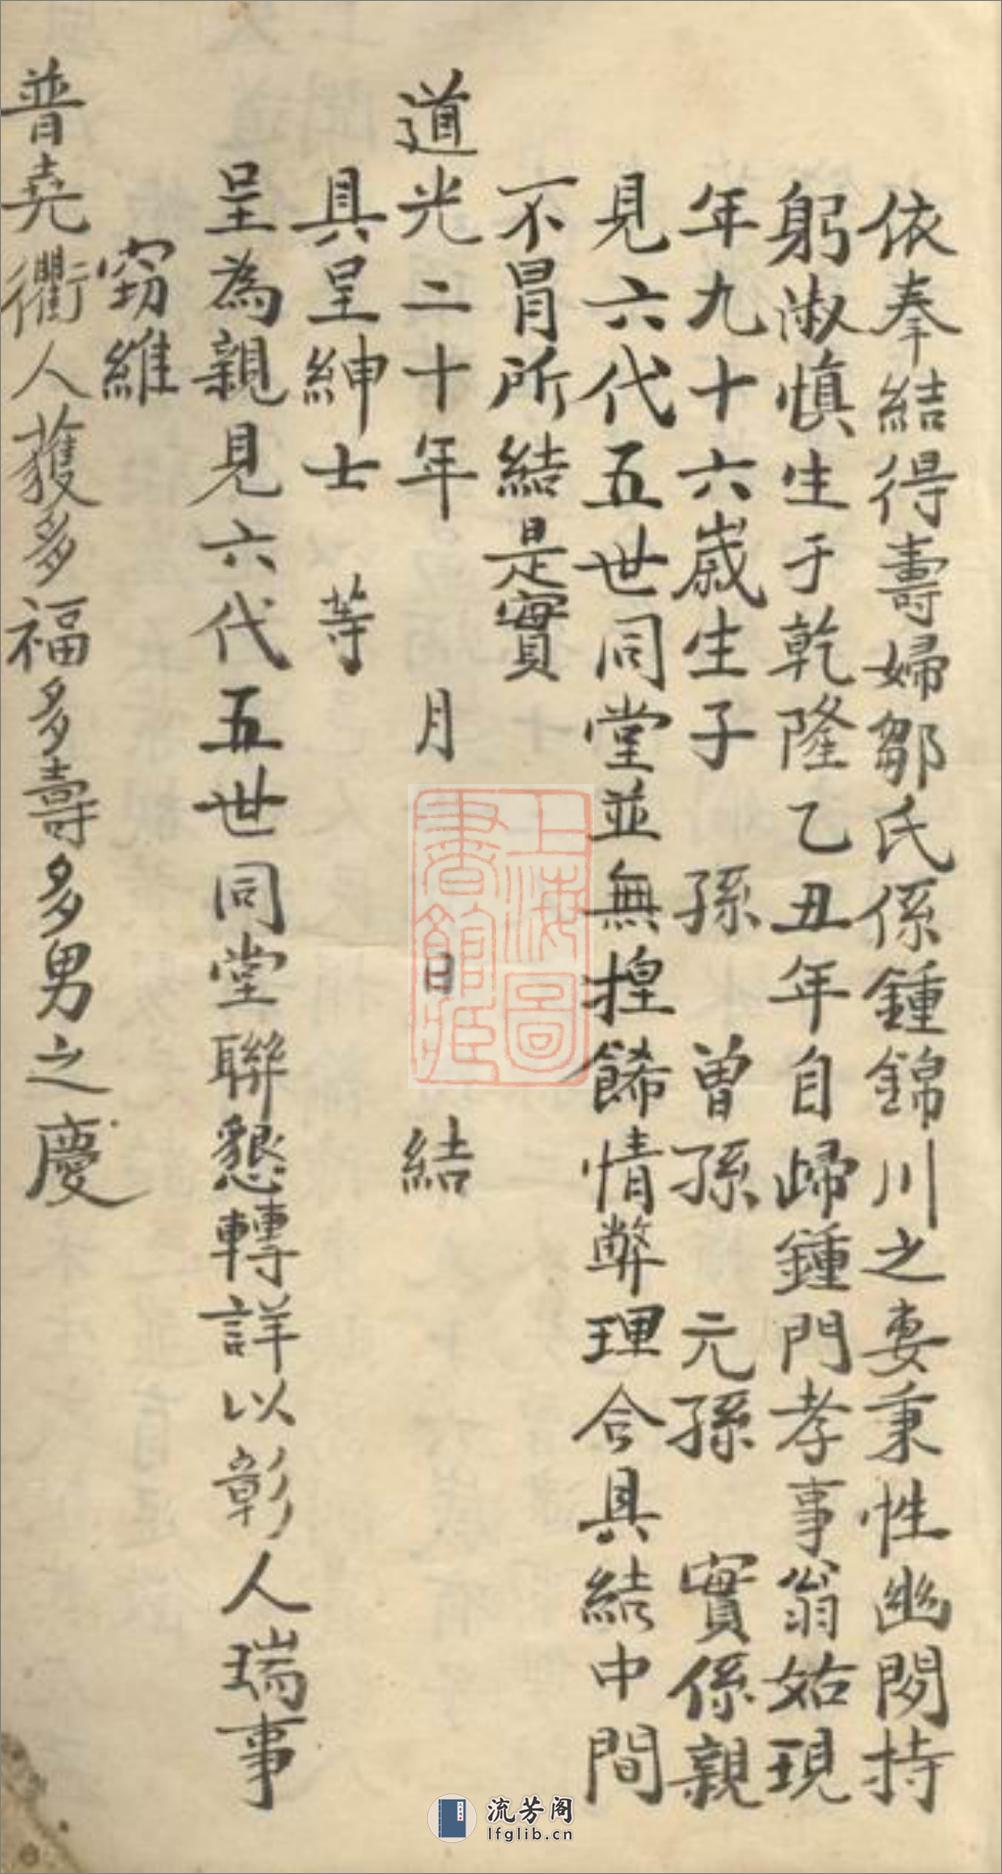 依奉結得壽婦鄒氏係鍾錦川之妻秉性幽閑持
躬淑慎生于乾隆乙丑年自歸鍾門孝事翁姑現
年九十六歲生子　孫　曾孫　元孫　實係親
見六代五世同堂並無捏餙情弊理合具結中間
不冒所結是實
道光二十年　月　日　結
具呈紳士　等
呈為親見六代五世同堂聯懇轉詳以彰人瑞事
窃維
普堯衢人獲多福多壽多男之慶
上海圖書館藏
流芳阁
lfglib.cn